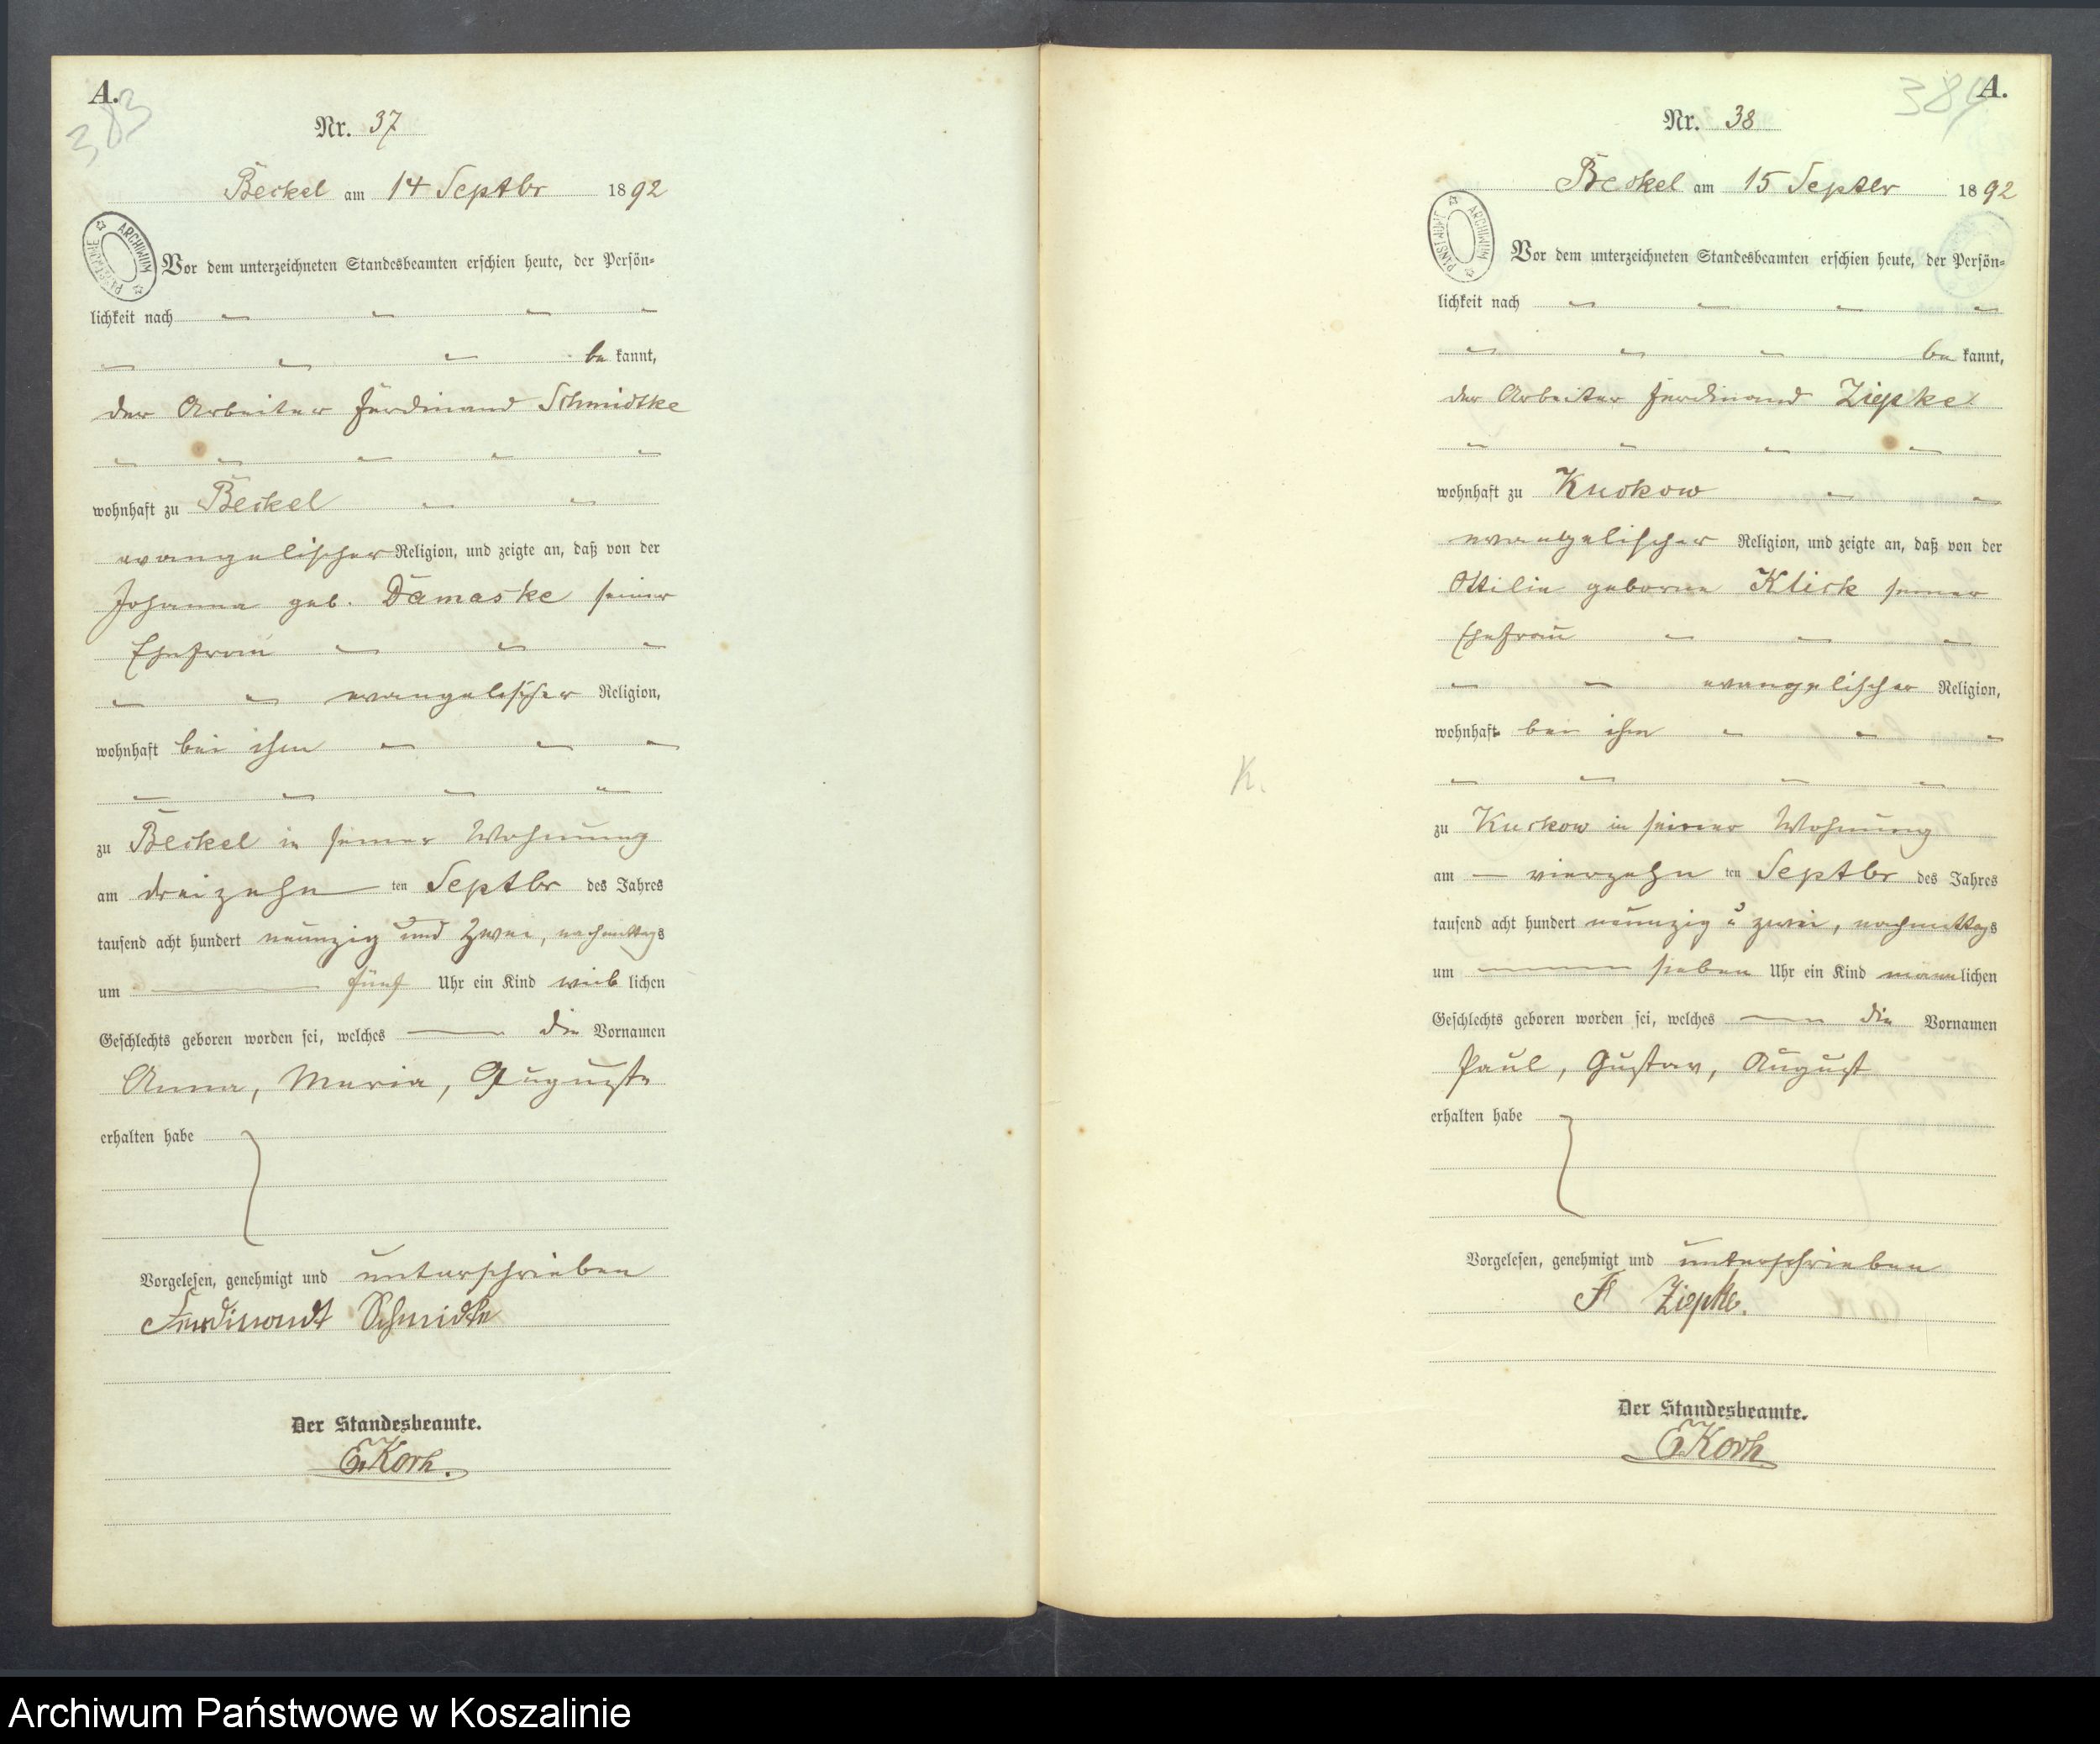 A.
383
Nr. 37
Beckel am 14 Septbr 1892
ARCHIWUM PAŃSTWOWE
Vor dem unterzeichneten Standesbeamten erschien heute, der Persön-
lichkeit nach
be kannt,
der Arbeiter Ferdinand Schmidtke
wohnhaft zu Beckel
evangelischer Religion, und zeigte an, daß von der
Johanna geb. Damaske seiner
Ehefrau
evangelischer Religion,
wohnhaft bei ihm
zu Beckel in seiner Wohnung
am dreizehn ten Septbr des Jahres
tausend acht hundert neunzig und zwei, nachmittags
um fünf Uhr ein Kind weib lichen
Geschlechts geboren worden sei, welches die Vornamen
Anna, Maria, Auguste
erhalten habe
Vorgelesen, genehmigt und unterschrieben
Ferdinandt Schmidtke
Der Standesbeamte.
A.
384
Nr. 38
Beckel am 15 Septbr 1892
ARCHIWUM PAŃSTWOWE
Vor dem unterzeichneten Standesbeamten erschien heute, der Persön-
lichkeit nach
be kannt,
der Arbeiter Ferdinand Ziepke
wohnhaft zu Kuckow
evangelischer Religion, und zeigte an, daß von der
Ottilie geborne Klick seiner
Ehefrau
evangelischer Religion,
wohnhaft bei ihm
K.
zu Kuckow in seiner Wohnung
am vierzehn ten Septbr des Jahres
tausend acht hundert neunzig u zwei, nachmittags
um sieben Uhr ein Kind männlichen
Geschlechts geboren worden sei, welches die Vornamen
Paul, Gustav, August
erhalten habe
Vorgelesen, genehmigt und unterschrieben
F Ziepke.
Der Standesbeamte.
Archiwum Państwowe w Koszalinie